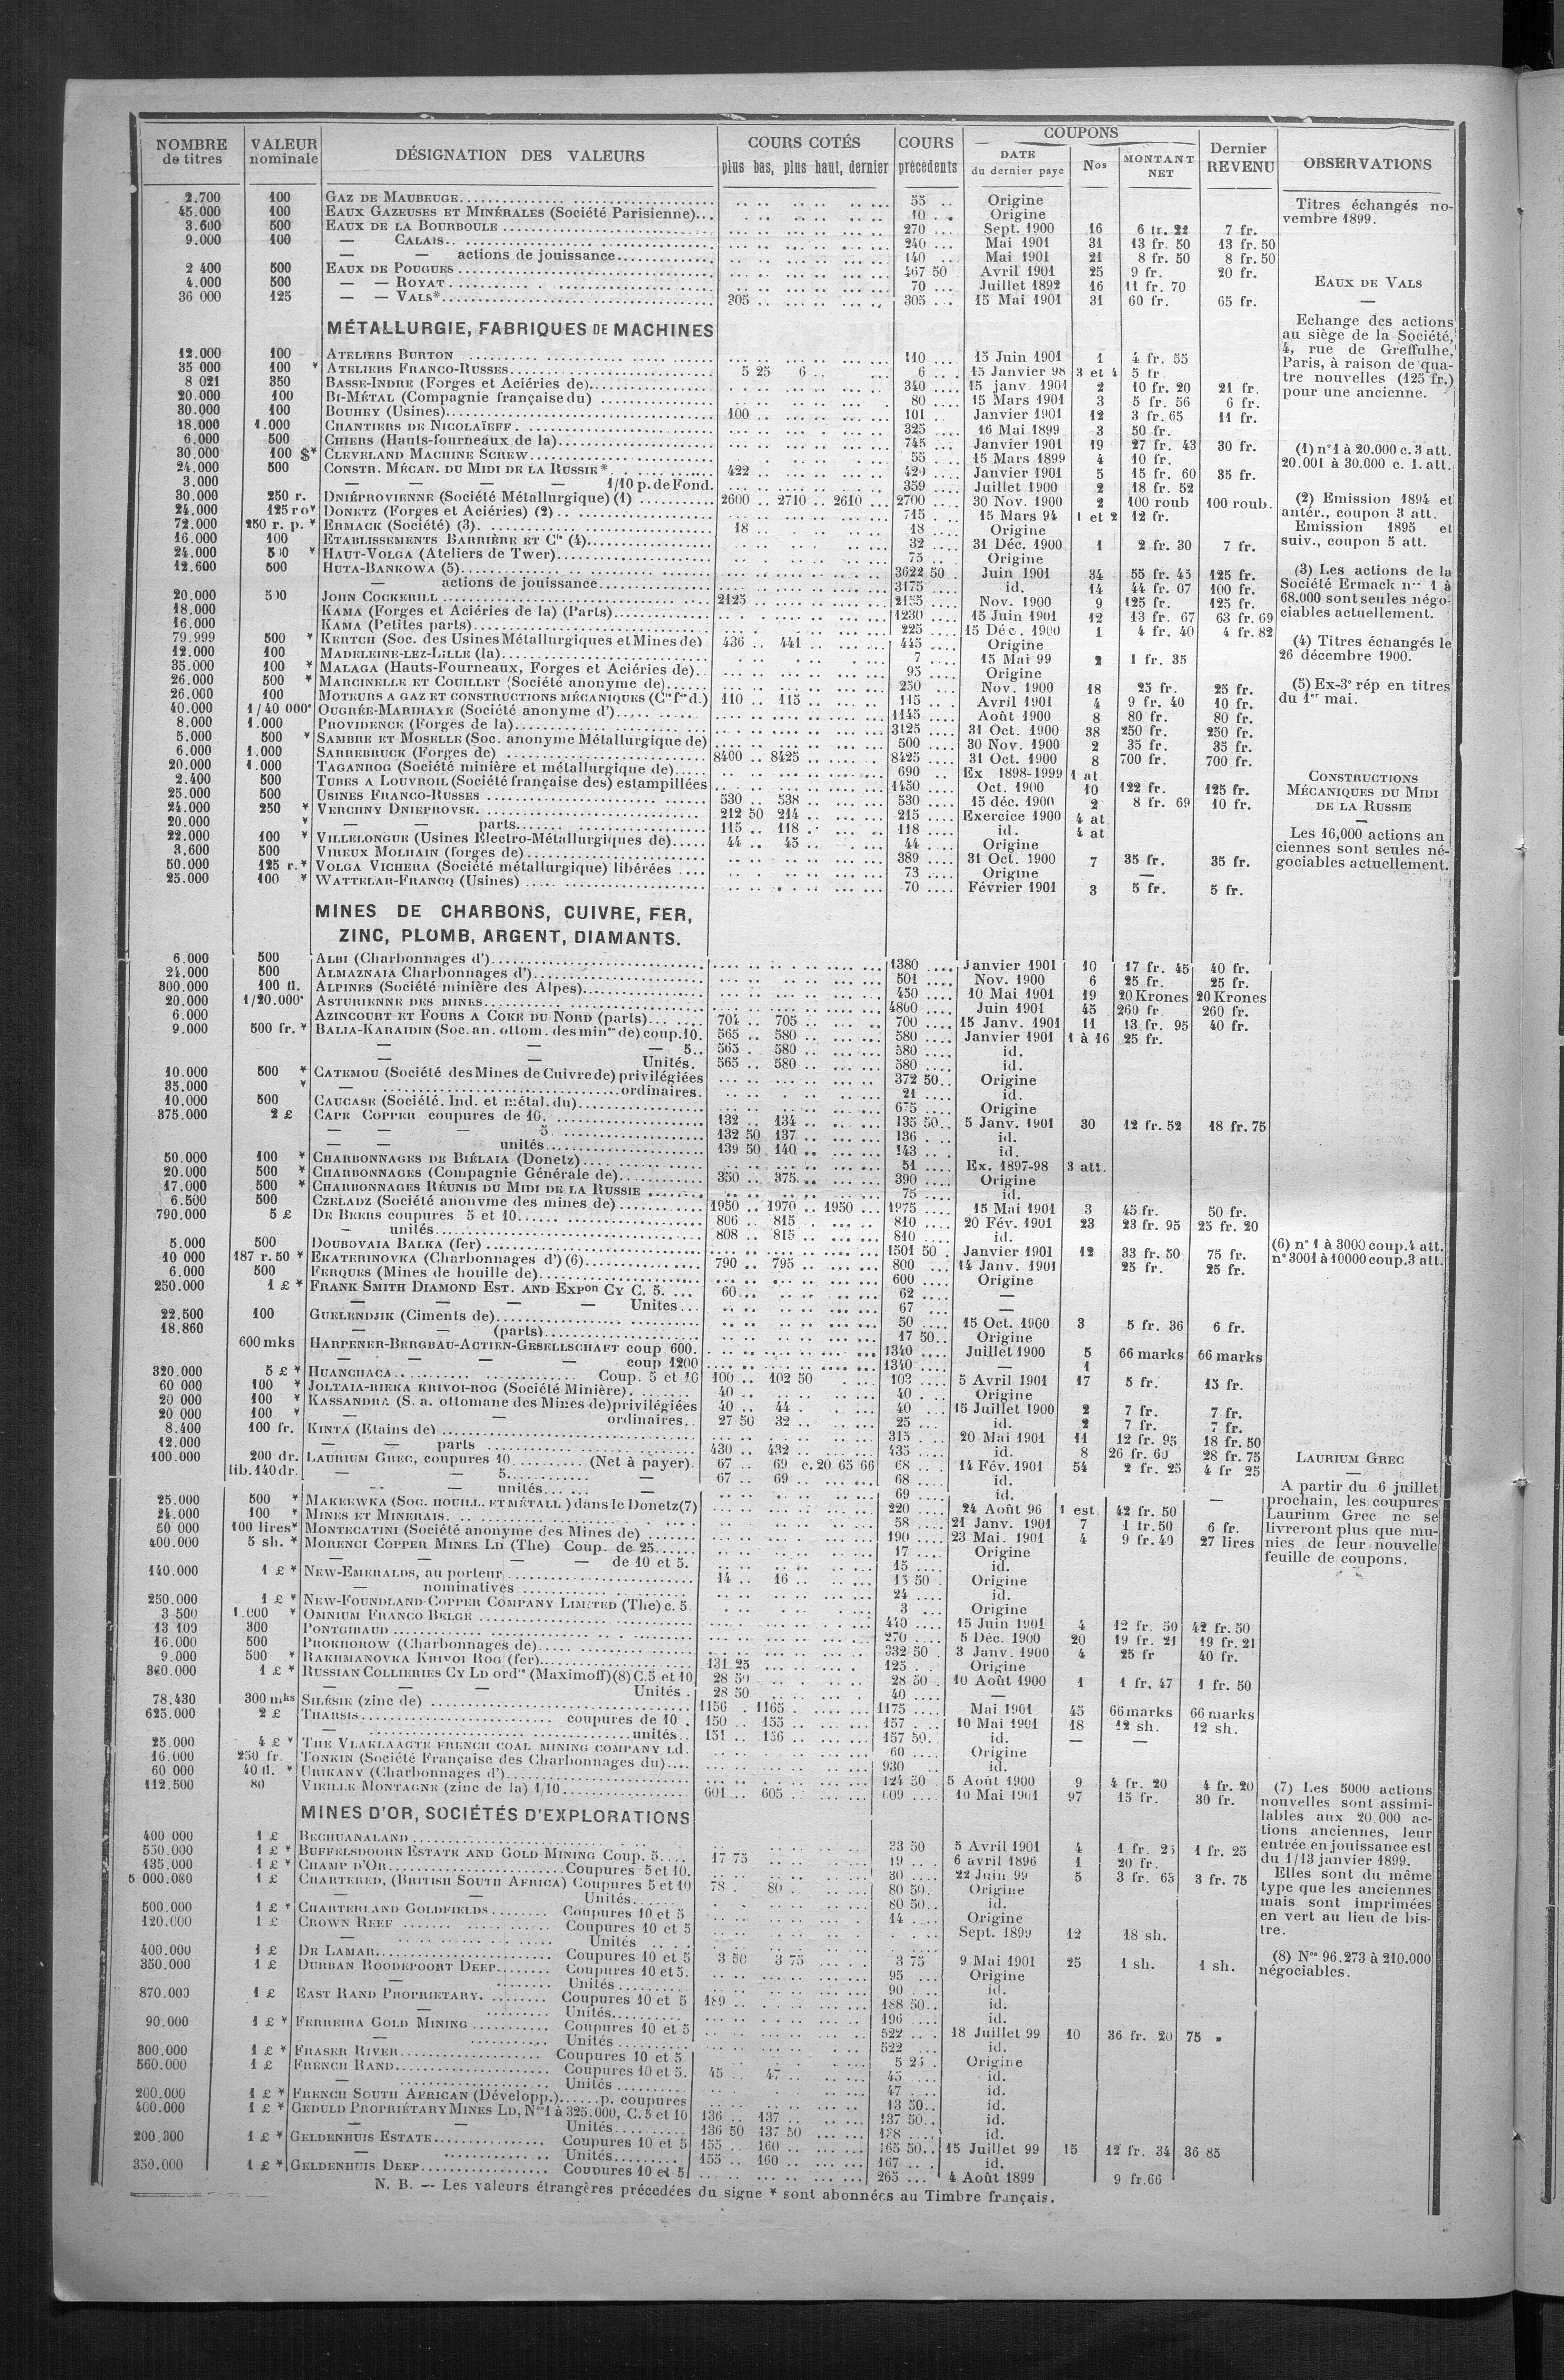 NOMBRE de titres | VALEUR nominale | DÉSIGNATION DES VALEURS | COURS COTÉS plus bas, plus haut, dernier | COURS précédents | COUPONS DATE du dernier paye | Nos | MONTANT NET | Dernier REVENU | OBSERVATIONS
2.700 100 GAZ DE MAUBEUGE 55 Origine
45.000 100 EAUX GAZEUSES ET MINÉRALES (Société Parisienne) 10 Origine
3.600 500 EAUX DE LA BOURBOULE 270 Sept. 1900 16 6 fr. 22 7 fr.
9.000 100 — CALAIS 240 Mai 1901 31 13 fr. 50 13 fr. 50
— — actions de jouissance 140 Mai 1901 21 8 fr. 50 8 fr. 50
2 400 500 EAUX DE POUGUES 467 50 Avril 1901 25 9 fr. 20 fr.
4.000 500 — — ROYAT 70 Juillet 1892 16 11 fr. 70
36 000 125 — — VALS* 305 305 15 Mai 1901 31 60 fr. 65 fr.
MÉTALLURGIE, FABRIQUES DE MACHINES
12.000 100 ATELIERS BURTON 110 15 Juin 1901 1 4 fr. 55
35 000 100 * ATELIERS FRANCO-RUSSES 5 25 6 6 15 Janvier 98 3 et 4 5 fr
8 021 350 BASSE-INDRE (Forges et Aciéries de) 340 15 janv 1901 2 10 fr. 20 21 fr.
20 000 100 BI-MÉTAL (Compagnie française du) 80 15 Mars 1901 3 5 fr. 56 6 fr.
30.000 100 BOUHEY (Usines) 100 101 Janvier 1901 12 3 fr. 65 11 fr.
18.000 1.000 CHANTIERS DE NICOLAÏEFF 325 16 Mai 1899 3 50 fr.
6.000 500 CHIERS (Hauts-fourneaux de la) 745 Janvier 1901 19 27 fr. 43 30 fr.
30.000 100 $* CLEVELAND MACHINE SCREW 55 15 Mars 1899 4 10 fr.
24.000 500 CONSTR. MÉCAN. DU MIDI DE LA RUSSIE* 422 420 Janvier 1901 5 15 fr. 60 35 fr.
3.000 — — — — 1/10 p. de Fond. 359 Juillet 1900 2 18 fr. 52
30.000 250 r. DNIÉPROVIENNE (Société Métallurgique) (1) 2600 2710 2610 2700 30 Nov. 1900 2 100 roub 100 roub.
24.000 125 ro* DONETZ (Forges et Aciéries) (2) 715 15 Mars 94 1 et 2 12 fr.
72.000 250 r. p. * ERMACK (Société) (3) 18 18 Origine
16.000 100 ETABLISSEMENTS BARRIÈRE ET Cie (4) 32 31 Déc. 1900 1 2 fr. 30 7 fr.
24.000 500 * HAUT-VOLGA (Ateliers de Twer) 75 Origine
12.600 500 HUTA-BANKOWA (5) 3622 50 Juin 1901 34 55 fr. 45 125 fr.
— actions de jouissance 3175 id. 14 44 fr. 07 100 fr.
20.000 500 JOHN COCKERILL 2125 2155 Nov. 1900 9 125 fr. 125 fr.
18.000 KAMA (Forges et Aciéries de la) (Parts) 1230 15 Juin 1901 12 13 fr. 67 63 fr. 69
16.000 KAMA (Petites parts) 225 15 Déc. 1900 1 4 fr. 40 4 fr. 82
79.999 500 * KERTCH (Soc. des Usines Métallurgiques et Mines de) 436 441 445 Origine
12.000 100 MADELEINE-LEZ-LILLE (la) 7 15 Mai 99 2 1 fr. 35
35.000 100 * MALAGA (Hauts-Fourneaux, Forges et Aciéries de) 95 Origine
26.000 500 * MARCINELLE ET COUILLET (Société anonyme de) 250 Nov. 1900 18 25 fr. 25 fr.
26.000 100 MOTEURS A GAZ ET CONSTRUCTIONS MÉCANIQUES (Cie fse d.) 110 115 115 Avril 1901 4 9 fr. 40 10 fr.
40.000 1/40 000e OUGRÉE-MARIHAYE (Société anonyme d') 1145 Août 1900 8 80 fr. 80 fr.
8.000 1.000 PROVIDENCE (Forges de la) 3125 31 Oct. 1900 38 250 fr. 250 fr.
5.000 500 * SAMBRE ET MOSELLE (Soc. anonyme Métallurgique de) 500 30 Nov. 1900 2 35 fr. 35 fr.
6.000 1.000 SARREBRUCK (Forges de) 8400 8425 8425 31 Oct. 1900 8 700 fr. 700 fr.
20.000 1.000 TAGANROG (Société minière et métallurgique de) 690 Ex 1898-1999 1 at
2.400 500 TUBES A LOUVROIL (Société française des) estampillées 1450 Oct. 1900 10 122 fr. 125 fr.
25.000 500 USINES FRANCO-RUSSES 530 538 530 15 déc. 1900 2 8 fr. 69 10 fr.
24.000 250 * VERCHNY DNIEPROVSK 212 50 214 215 Exercice 1900 4 at
20.000 * — — parts 115 118 118 id. 4 at
22.000 100 * VILLELONGUE (Usines Électro-Métallurgiques de) 44 45 44 Origine
3.600 500 VIREUX MOLHAIN (forges de) 389 31 Oct. 1900 7 35 fr. 35 fr.
50.000 125 r.* VOLGA VICHERA (Société métallurgique) libérées 73 Origine —
25.000 100 * WATTELAR-FRANCQ (Usines) 70 Février 1901 3 5 fr. 5 fr.
MINES DE CHARBONS, CUIVRE, FER,
ZINC, PLOMB, ARGENT, DIAMANTS.
6.000 500 ALBI (Charbonnages d') 1380 Janvier 1901 10 17 fr. 45 40 fr.
24.000 500 ALMAZNAIA Charbonnages d') 501 Nov. 1900 6 25 fr. 25 fr.
300.000 100 fl. ALPINES (Société minière des Alpes) 450 10 Mai 1901 19 20 Krones 20 Krones
20.000 1/20.000e ASTURIENNE DES MINES 4800 Juin 1901 45 260 fr 260 fr.
6.000 AZINCOURT ET FOURS A COKE DU NORD (parts) 704 705 700 15 Janv. 1901 11 13 fr. 95 40 fr.
9.000 500 fr. * BALIA-KARAIDIN (Soc. an. ottom. des mines de) coup. 10. 565 580 580 Janvier 1901 1 à 16 25 fr.
— — — 5 565 580 580 id.
— — Unités. 565 580 580 id.
10.000 500 * CATEMOU (Société des Mines de Cuivre de) privilégiées 372 50 Origine
35.000 * — ordinaires. 21 id.
10.000 500 CAUCASE (Société. Ind. et métal. du) 675 Origine
375.000 2 £ CAPE COPPER coupures de 10. 132 134 135 50 5 Janv. 1901 30 12 fr. 52 18 fr. 75
— — — 5 132 50 137 136 id.
— — unités 139 50 140 143 id.
50.000 100 * CHARBONNAGES DE BIÉLAIA (Donetz) 51 Ex. 1897-98 3 att.
20.000 500 * CHARBONNAGES (Compagnie Générale de) 350 375 390 Origine
17.000 500 * CHARBONNAGES RÉUNIS DU MIDI DE LA RUSSIE 75 id.
6.500 500 CZELADZ (Société anonyme des mines de) 1950 1970 1950 1975 15 Mai 1901 3 45 fr. 50 fr.
790.000 5 £ DE BEERS coupures 5 et 10 806 815 810 20 Fév. 1901 23 23 fr. 95 25 fr. 20
— unités 808 815 810 id.
5.000 500 DOUBOVAIA BALKA (fer) 1501 50 Janvier 1901 12 33 fr. 50 75 fr.
10 000 187 r. 50 * EKATERINOVKA (Charbonnages d') (6) 790 795 800 14 Janv. 1901 25 fr. 25 fr.
6.000 500 FERQUES (Mines de houille de) 600 Origine
250.000 1 £ * FRANK SMITH DIAMOND EST. AND EXPon CY C. 5. 60 62 —
— — — — Unites 67 —
22.500 100 GUELENDJIK (Ciments de) 50 15 Oct. 1900 3 5 fr. 36 6 fr.
18.860 — — (parts) 17 50 Origine
600 mks HARPENER-BERGBAU-ACTIEN-GESELLSCHAFT coup 600. 1340 Juillet 1900 5 66 marks 66 marks
— — — — coup 1200 1340 — 1
320.000 5 £ * HUANCHACA Coup. 5 et 10 100 102 50 103 5 Avril 1901 17 5 fr. 15 fr.
60 000 100 * JOLTAIA-RIEKA KRIVOI-ROG (Société Minière) 40 40 Origine
20 000 100 * KASSANDRA (S. a. ottomane des Mines de) privilégiées 40 44 40 15 Juillet 1900 2 7 fr. 7 fr.
20 000 100 * — — ordinaires 27 50 32 25 id. 2 7 fr. 7 fr.
8.400 100 fr. KINTA (Etains de) 315 20 Mai 1901 11 12 fr. 95 18 fr. 50
12.000 — — parts 430 432 435 id. 8 26 fr. 60 28 fr. 75
100.000 200 dr. LAURIUM GREC, coupures 10 (Net à payer) 67 69 c. 20 65 66 68 14 Fév. 1901 54 2 fr. 25 4 fr 25
lib. 140 dr. — — 5 — 67 69 68 id.
— — unités — 69 id.
25.000 500 * MAKEEWKA (SOC. HOUILL. ET MÉTALL) dans le Donetz (7) 220 24 Août 96 1 est. 42 fr. 50 —
24.000 100 * MINES ET MINERAIS 58 21 Janv. 1901 7 1 fr. 50 6 fr.
50 000 100 lires* MONTECATINI (Société anonyme des Mines de) 190 23 Mai. 1901 4 9 fr. 40 27 lires
400.000 5 sh. * MORENCI COPPER MINES LD (The) Coup. de 25 17 Origine
— — — — de 10 et 5. 15 id.
140.000 1 £ * NEW-EMERALDS, au porteur 14 16 15 50 Origine
— nominatives 24 id.
250.000 1 £ * NEW-FOUNDLAND-COPPER COMPANY LIMITED (The) c. 5 3 Origine
3 500 1.000 * OMNIUM FRANCO BELGE 440 15 Juin 1901 4 42 fr. 50 42 fr. 50
13 109 300 PONTGIBAUD 270 5 Déc. 1900 20 19 fr. 21 19 fr. 21
16.000 500 PROKHOROW (Charbonnages de) 332 50 3 Janv. 1900 4 25 fr 40 fr.
9.000 500 * RAKHMANOVKA KRIVOI ROG (fer) 131 25 125 Origine
360.000 1 £ * RUSSIAN COLLIERIES CY LD ordres (Maximoff) (8) C. 5 et 10 28 50 28 50 10 Août 1900 1 1 fr. 47 1 fr. 50
— — — Unités 28 50 40 —
78.430 300 mks SILÉSIE (zinc de) 1156 1165 1175 Mai 1901 45 66 marks 66 marks
625.000 2 £ THARSIS coupures de 10 150 155 157 10 Mai 1901 18 12 sh. 12 sh.
— unités 151 156 157 50 id. — —
25.000 4 £ * THE VLAKLAAGTE FRENCH COAL MINING COMPANY Ld 60 Origine
16.000 250 fr. TONKIN (Société Française des Charbonnages du) 930 id.
60 000 40 fl. * URIKANY (Charbonnages d') 124 50 5 Août 1900 9 4 fr. 20 4 fr. 20
112.500 80 VIEILLE MONTAGNE (zinc de la) 1/10 601 605 609 10 Mai 1901 97 15 fr. 30 fr.
MINES D'OR, SOCIÉTÉS D'EXPLORATIONS
400 000 1 £ BECHUANALAND 23 50 5 Avril 1901 4 1 fr. 25 1 fr. 25
550.000 1 £ * BUFFELSDOORN ESTATE AND GOLD MINING Coup. 5 17 75 19 6 avril 1896 1 20 fr.
135.000 1 £ * CHAMP D'OR Coupures 5 et 10. 30 22 Juin 99 5 3 fr. 65 3 fr. 75
5 000.000 1 £ CHARTERED, (BRITISH SOUTH AFRICA) Coupures 5 et 10 78 80 80 50 Origine
— — Unités 80 50 id.
500.000 1 £ * CHARTERLAND GOLDFIELDS Coupures 10 et 5 14 Origine
120.000 1 £ CROWN REEF Coupures 10 et 5 Sept. 1899 12 18 sh.
— Unités
400.000 1 £ DE LAMAR Coupures 10 et 5 3 50 3 75 3 75 9 Mai 1901 25 1 sh. 1 sh.
350.000 1 £ DURBAN ROODEPOORT DEEP Coupures 10 et 5. 95 Origine
— Unités 90 id.
870.000 1 £ EAST RAND PROPRIETARY Coupures 10 et 5 189 188 50 id.
— Unités 196 id.
90.000 1 £ * FERREIRA GOLD MINING Coupures 10 et 5 522 18 Juillet 99 10 36 fr. 20 75 »
— Unités 522 id.
300.000 1 £ * FRASER RIVER Coupures 10 et 5 5 25 Origine
560.000 1 £ FRENCH RAND Coupures 10 et 5. 45 47 45 id.
— Unités 47 id.
200.000 1 £ * FRENCH SOUTH AFRICAN (Développ.) p. coupures 13 50 id.
400.000 1 £ * GEDULD PROPRIÉTARY MINES LD, Nos 1 à 325.000, C. 5 et 10 136 137 137 50 id.
— — Unités 136 50 137 50 138 id.
200.000 1 £ * GELDENHUIS ESTATE Coupures 10 et 5 155 160 165 50 15 Juillet 99 15 12 fr. 34 36 85
— Unités 155 160 167 id.
350.000 1 £ * GELDENHUIS DEEP Coupures 10 et 5 265 4 Août 1899 9 fr. 66
N. B. — Les valeurs étrangères précédées du signe * sont abonnées au Timbre français.
Titres échangés no-
vembre 1899.
EAUX DE VALS
—
Echange des actions
au siège de la Société,
4, rue de Greffulhe,
Paris, à raison de qua-
tre nouvelles (125 fr.)
pour une ancienne.
(1) n° 1 à 20.000 c. 3 att.
20.001 à 30.000 c. 1. att.
(2) Emission 1894 et
antér., coupon 3 att.
Emission 1895 et
suiv., coupon 5 att.
(3) Les actions de la
Société Ermack nos 1 à
68.000 sont seules négo-
ciables actuellement.
(4) Titres échangés le
26 décembre 1900.
(5) Ex-3e rép en titres
du 1er mai.
CONSTRUCTIONS
MÉCANIQUES DU MIDI
DE LA RUSSIE
—
Les 16,000 actions an
ciennes sont seules né-
gociables actuellement.
(6) n° 1 à 3000 coup. 4 att.
n° 3001 à 10000 coup. 3 att.
LAURIUM GREC
—
A partir du 6 juillet
prochain, les coupures
Laurium Grec ne se
livreront plus que mu-
nies de leur nouvelle
feuille de coupons.
(7) Les 5000 actions
nouvelles sont assimi-
lables aux 20 000 ac-
tions anciennes, leur
entrée en jouissance est
du 1/13 janvier 1899.
Elles sont du même
type que les anciennes
mais sont imprimées
en vert au lieu de bis-
tre.
(8) Nos 96.273 à 210.000
négociables.